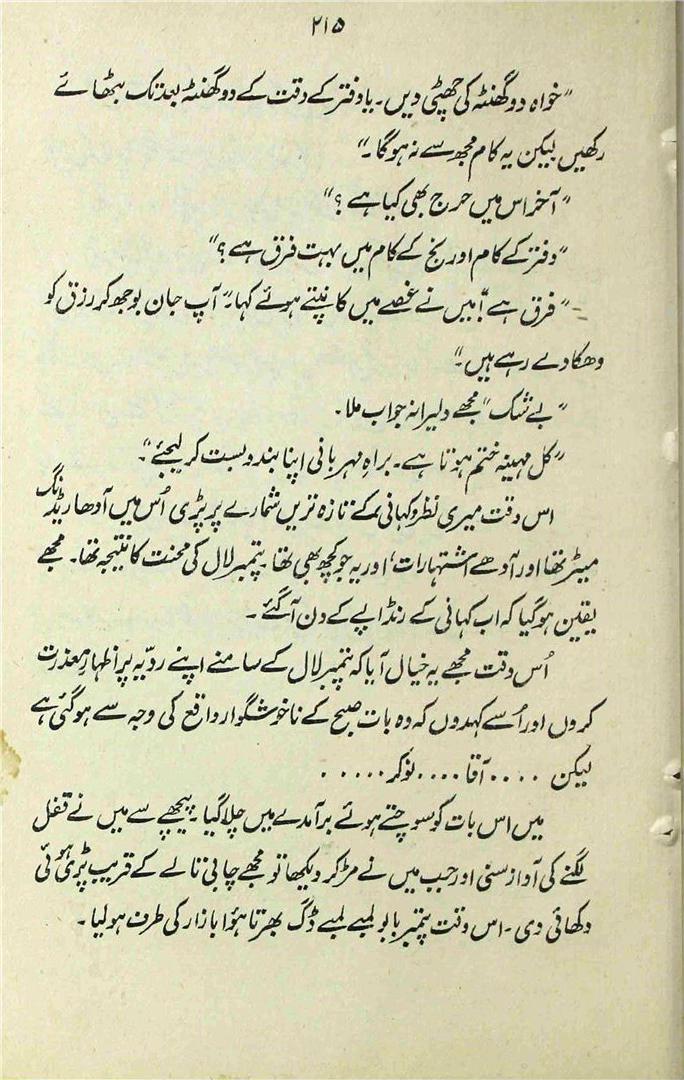 ۲۱۵
"خواہ دو گھنٹہ کی چھٹی دیں۔ یا دفتر کے وقت کے دو گھنٹہ بعد تک بٹھائے
رکھیں لیکن یہ کام مجھ سے نہ ہو گا۔"
"آخر اس میں حرج بھی کیا ہے؟"
"دفتر کے کام اور نج کے کام میں بہت فرق ہے؟"
"فرق ہے!" میں نے غصے میں کانپتے ہوئے کہا۔ "آپ جان بوجھ کر رزق کو
دھکا دے رہے ہیں۔"
"بے شک" مجھے دلیرانہ جواب ملا۔
"کل مہینہ ختم ہوتا ہے۔ براہِ مہربانی اپنا بندوبست کر لیجئے۔"
اس وقت میری نظر کہانی کے تازہ ترین شمارے پر پڑی اُس میں آدھا ریڈنگ
میٹر تھا اور آدھے اشتہارات، اور یہ جو کچھ بھی تھا پتمبر لال کی محنت کا نتیجہ تھا۔ مجھے
یقین ہو گیا کہ اب کہانی کے رنڈاپے کے دن آ گئے۔
اُس وقت مجھے یہ خیال آیا کہ پتمبر لال کے سامنے اپنے ردیّہ پر اظہارِ معذرت
کروں اور اُسے کہدوں کہ وہ بات صبح کے ناخوشگوار واقع کی وجہ سے ہو گئی ہے
لیکن .... آقا .... نوکر .....
میں اس بات کو سوچتے ہوئے برآمدے میں چلا گیا۔ پیچھے سے میں نے قفل
لگنے کی آواز سنی اور جب میں نے مڑ کر دیکھا تو مجھے چابی تالے کے قریب پڑی ہوئی
دکھائی دی۔ اس وقت پتمبر بابو لمبے لمبے ڈگ بھرتا ہؤا بازار کی طرف ہو لیا۔